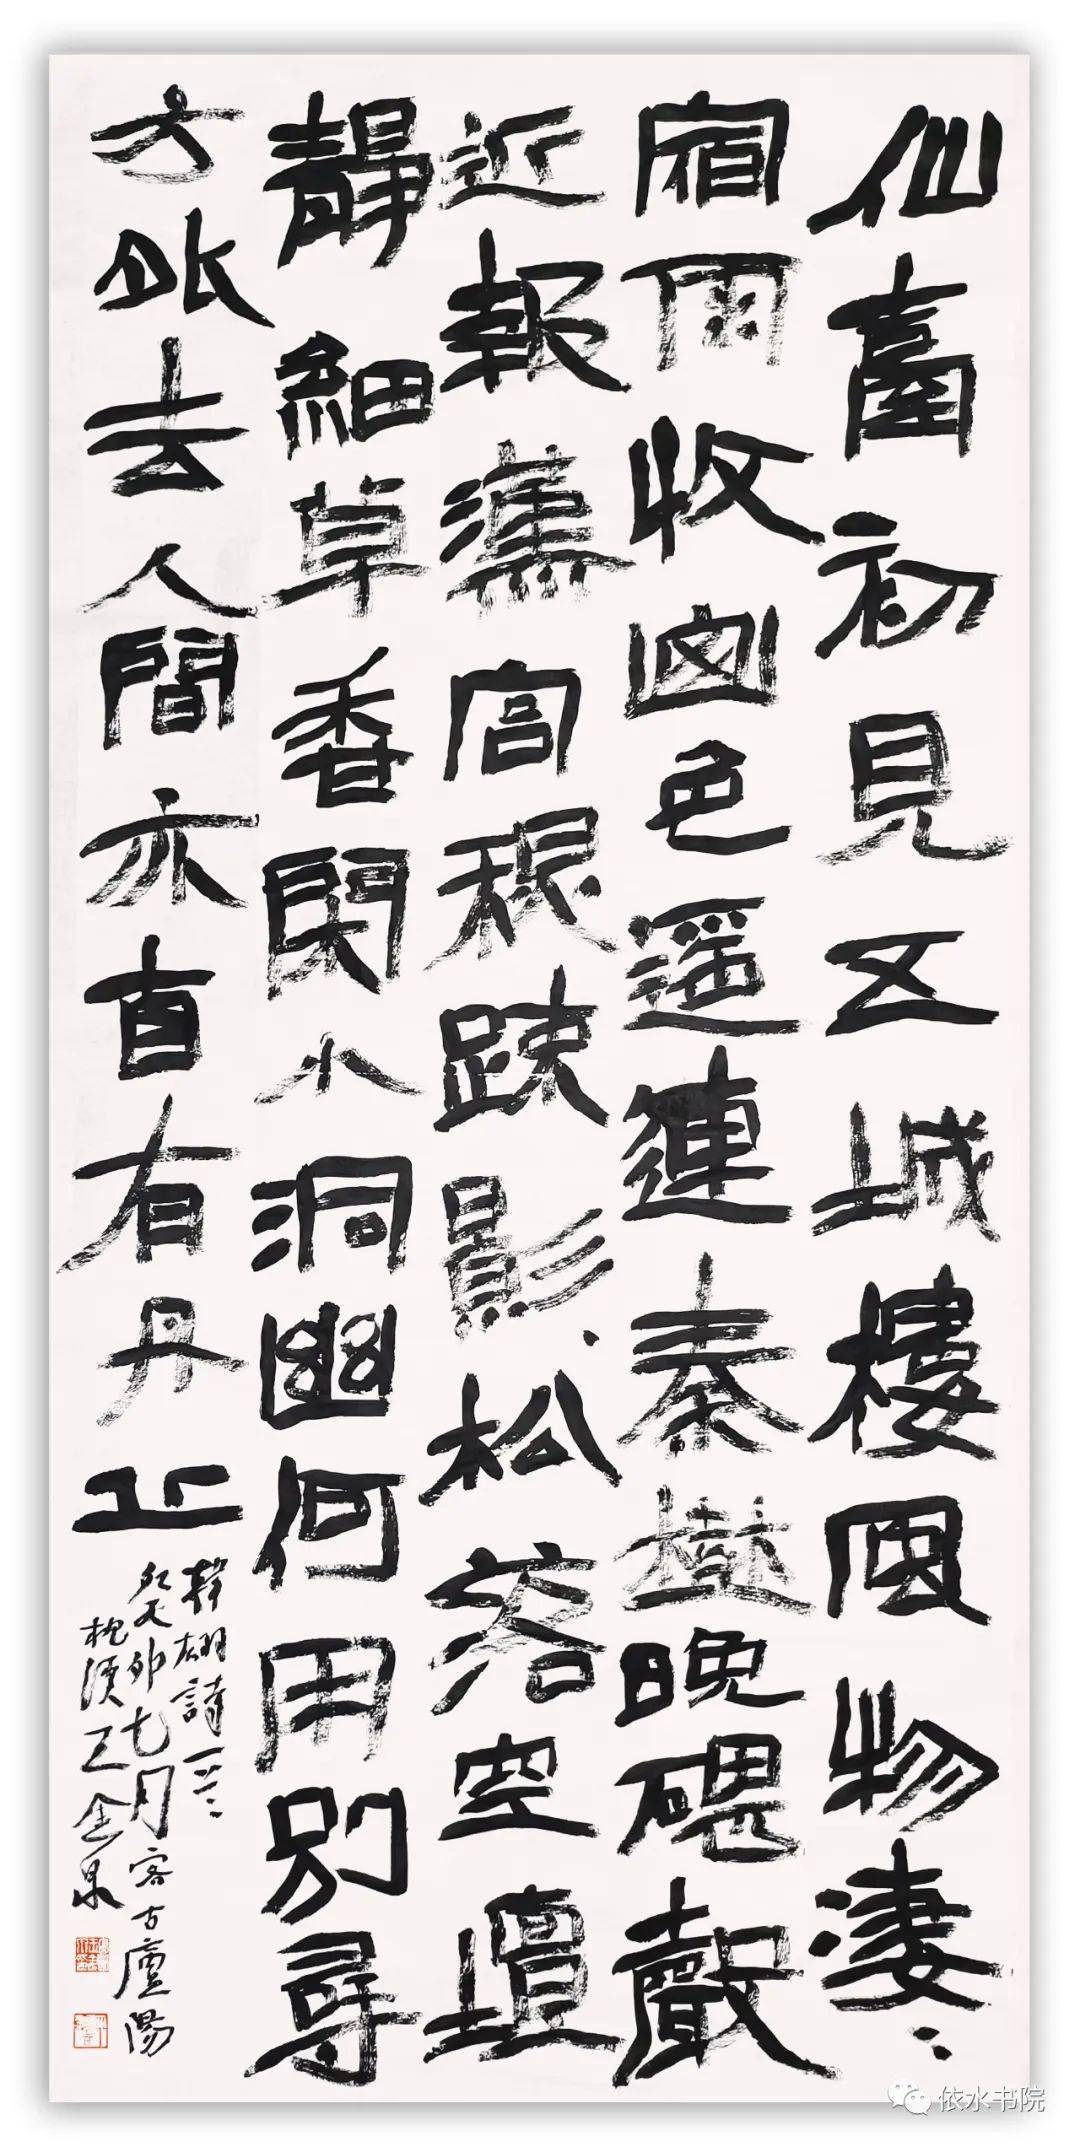 仙臺初見五城樓風物淒〻
宿雨收山色遥連秦樹晚碪聲
近報漢宫秋踈影松落空壇
靜細草香閑小洞幽何用別尋
方外去人間亦自有丹丘
韓翃詩一首
癸卯七月客古廬陽
王金泉
依水书院